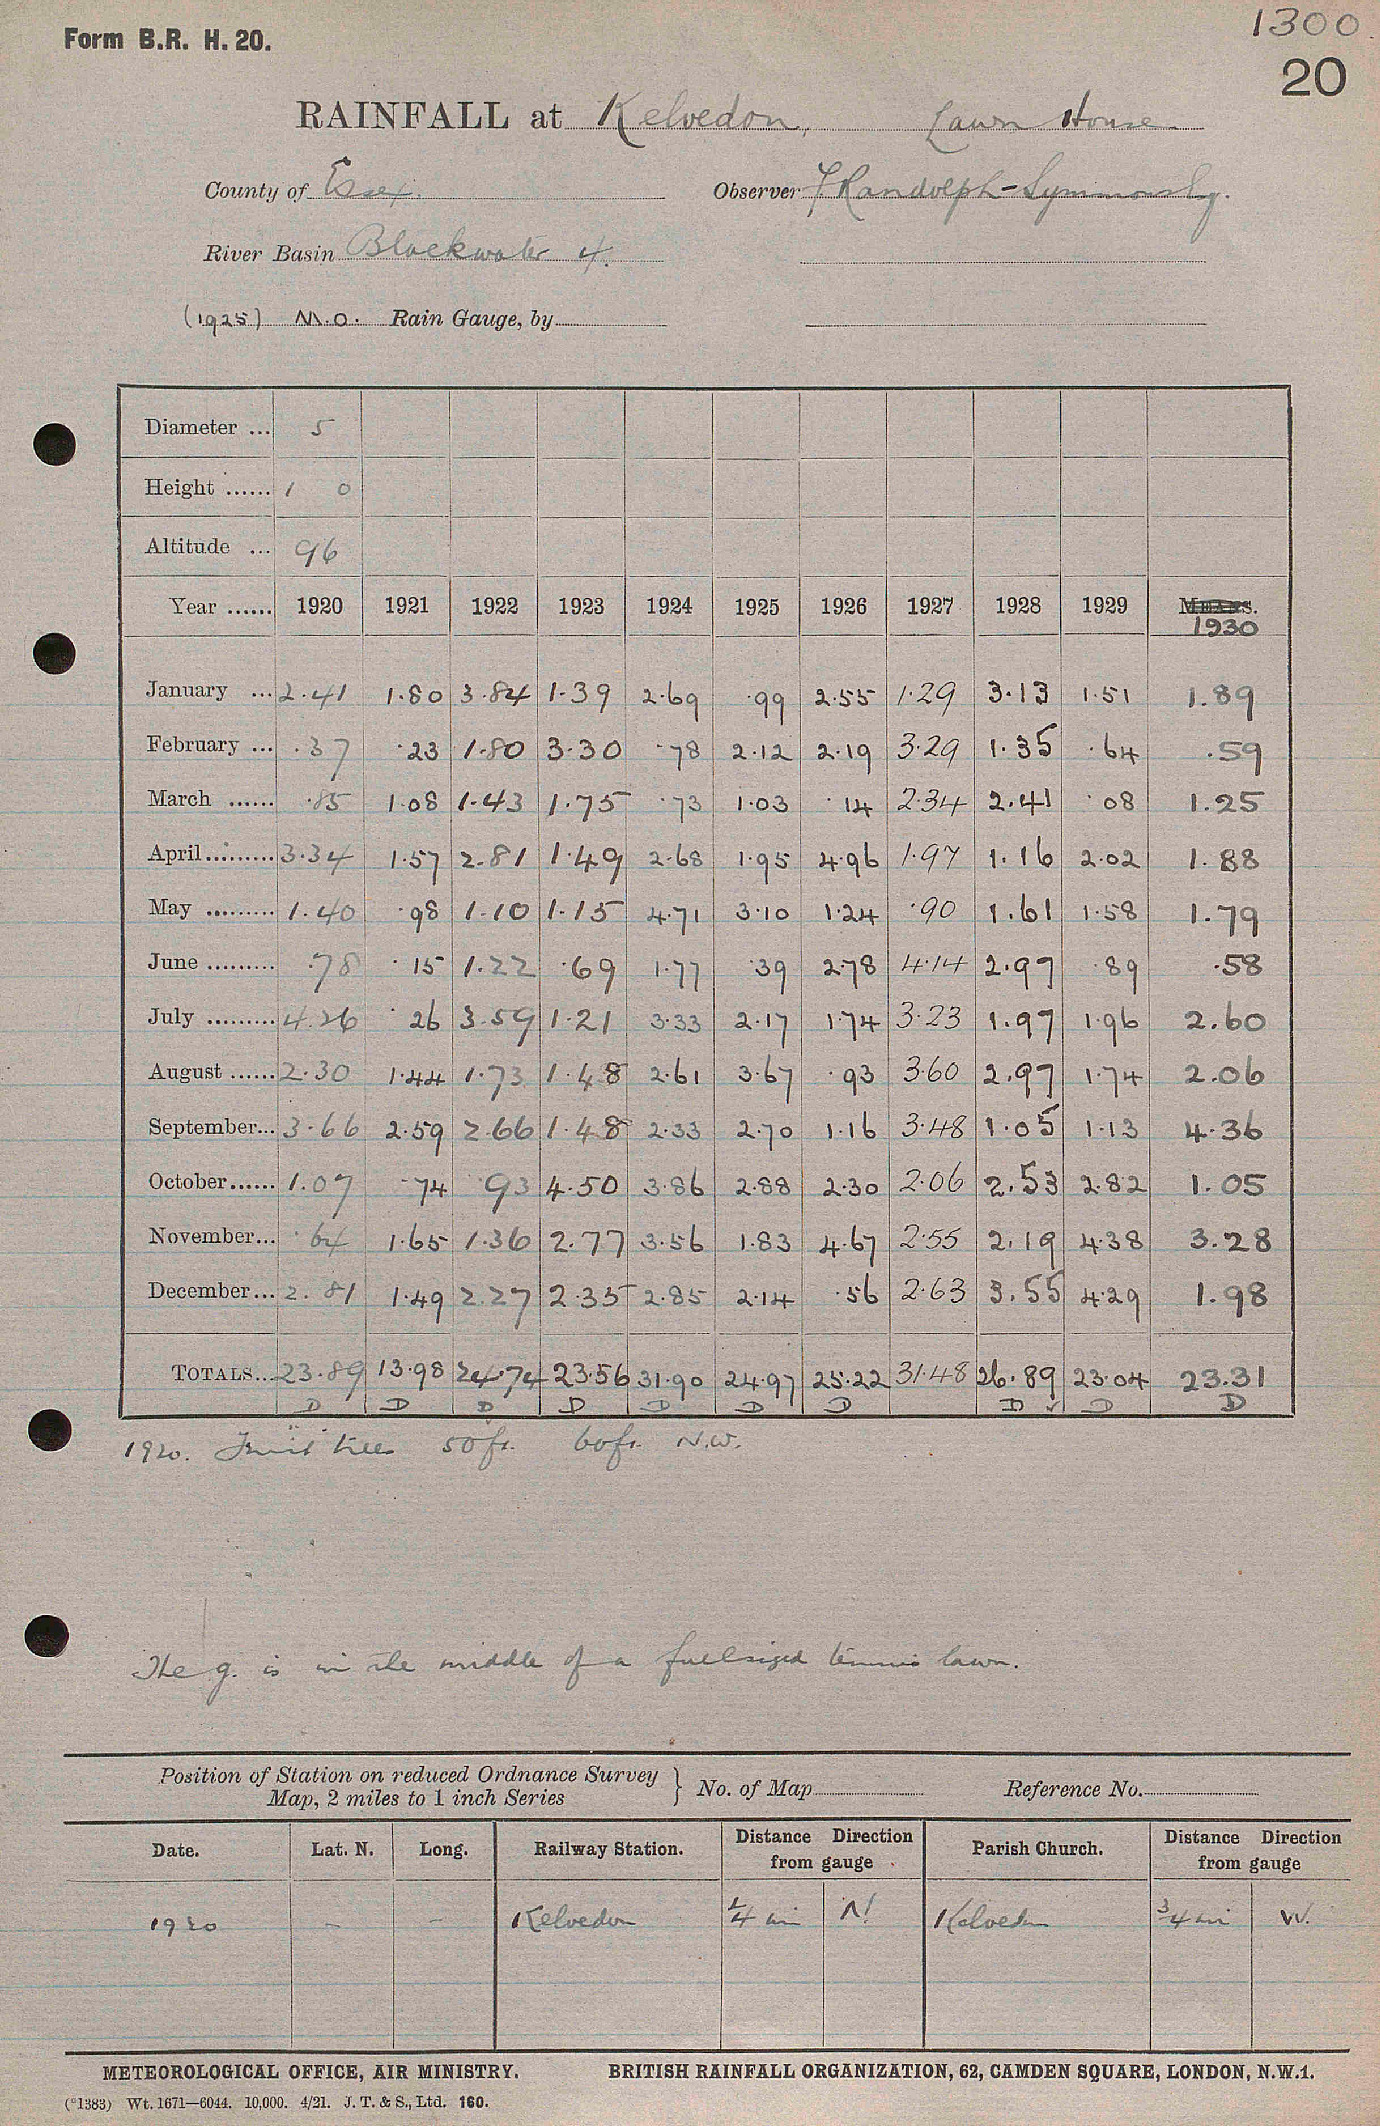 1300
Form B.R. H. 20.
20
RAINFALL at Kelvedon, Lawn House
County of Essex. Observer F Randolph-Symmons Esq.
River Basin Blackwater 4.
(1925) M.O. Rain Gauge, by
Diameter ... 5
Height ...... 1 0
Altitude ... 96
Year ...... 1920 1921 1922 1923 1924 1925 1926 1927 1928 1929 MEANS.
1930
January ... 2.41 1.80 3.84 1.39 2.69 .99 2.55 1.29 3.13 1.51 1.89
February ... .37 .23 1.80 3.30 .78 2.12 2.19 3.29 1.35 .64 .59
March ...... .85 1.08 1.43 1.75 .73 1.03 .14 2.34 2.41 .08 1.25
April ......... 3.34 1.57 2.81 1.49 2.68 1.95 4.96 1.97 1.16 2.02 1.88
May ......... 1.40 .98 1.10 1.15 4.71 3.10 1.24 .90 1.61 1.58 1.79
June ......... .78 .15 1.22 .69 1.77 .39 2.78 4.14 2.97 .89 .58
July ......... 4.26 .26 3.59 1.21 3.33 2.17 1.74 3.23 1.97 1.96 2.60
August ...... 2.30 1.44 1.73 1.48 2.61 3.67 .93 3.60 2.97 1.74 2.06
September... 3.66 2.59 2.66 1.48 2.33 2.70 1.16 3.48 1.05 1.13 4.36
October...... 1.07 .74 .93 4.50 3.86 2.88 2.30 2.06 2.53 2.82 1.05
November... .64 1.65 1.36 2.77 3.56 1.83 4.67 2.55 2.19 4.38 3.28
December... 2.81 1.49 2.27 2.35 2.85 2.14 .56 2.63 3.55 4.29 1.98
TOTALS... 23.89 13.98 24.74 23.56 31.90 24.97 25.22 31.48 26.89 23.04 23.31
D D D D D D D D ✓ D D
1920. Fruit trees 50ft. 60ft. N.W.
The g. is in the middle of a fullsized tennis lawn.
Position of Station on reduced Ordnance Survey
Map, 2 miles to 1 inch Series } No. of Map Reference No.
Date. Lat. N. Long. Railway Station. Distance Direction from gauge Parish Church. Distance Direction from gauge
1920 – – Kelvedon ¼ mi N Kelvedon ¾ mi W.
METEOROLOGICAL OFFICE, AIR MINISTRY. BRITISH RAINFALL ORGANIZATION, 62, CAMDEN SQUARE, LONDON, N.W.1.
(*1383) Wt. 1671—6044. 10,000. 4/21. J. T. & S., Ltd. 160.